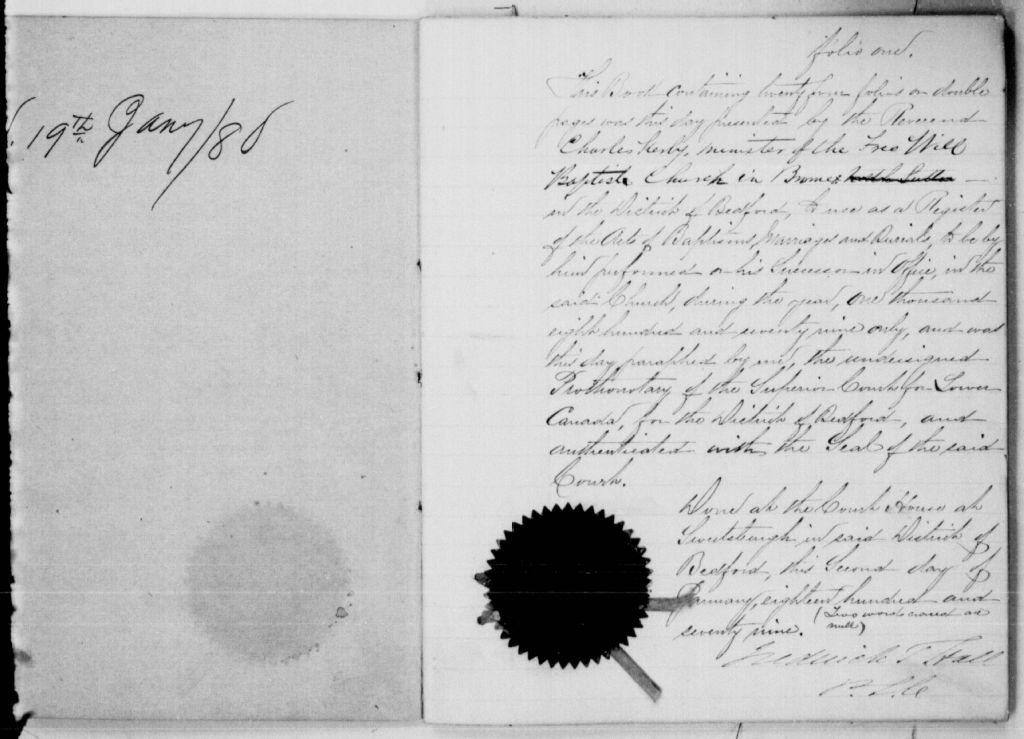 19th Jany/80
folio one.
This Book containing twenty four folios or double
pages was this day presented by the Reverend
Charles Kerby, minister of the Free Will
Baptist Church in Brome
in the District of Bedford, to use as a Register
of the Acts of Baptisms, Marriages and Burials, to be by
him performed or his Successor in Office, in the
said Church, during the year, one thousand
eight hundred and seventy nine only, and was
this day paraphed by me, the undersigned
Prothonotary of the Superior Court for Lower
Canada, for the District of Bedford, and
authenticated with the Seal of the said
Court.
Done at the Court House at
Sweetsburgh in said District of
Bedford, this Second day of
January, eighteen hundred and
seventy nine. (Two words erased are
null)
Frederick T Hall
P.S.C.